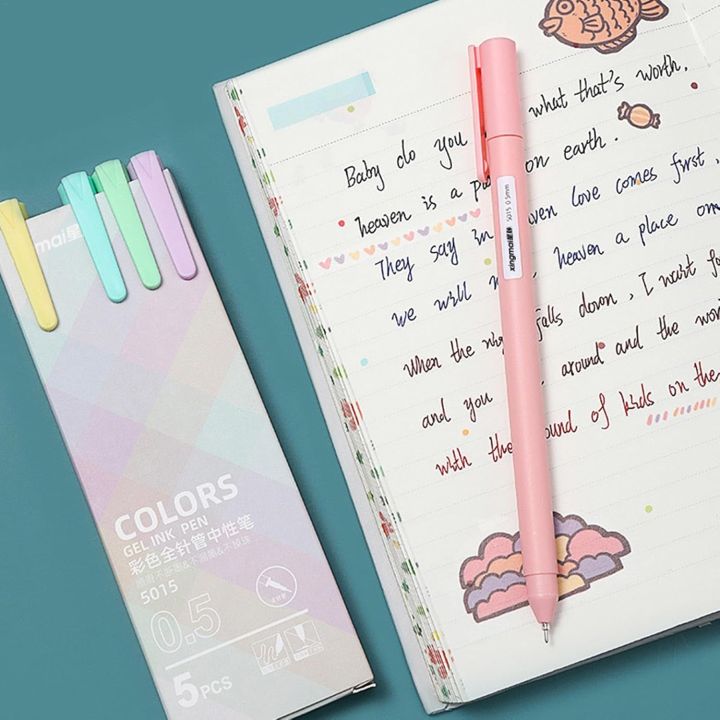 mai星
COLORS
GEL INK PEN
彩色全针管中性笔
5015
0.5
5PCS
xingmai星脉
5015 0.5mm
Baby do you what that's worth.
heaven is a on earth.
They say in love comes first,
we will heaven a place on
when the falls down, I want
and you around and the
with the sound of kids on the